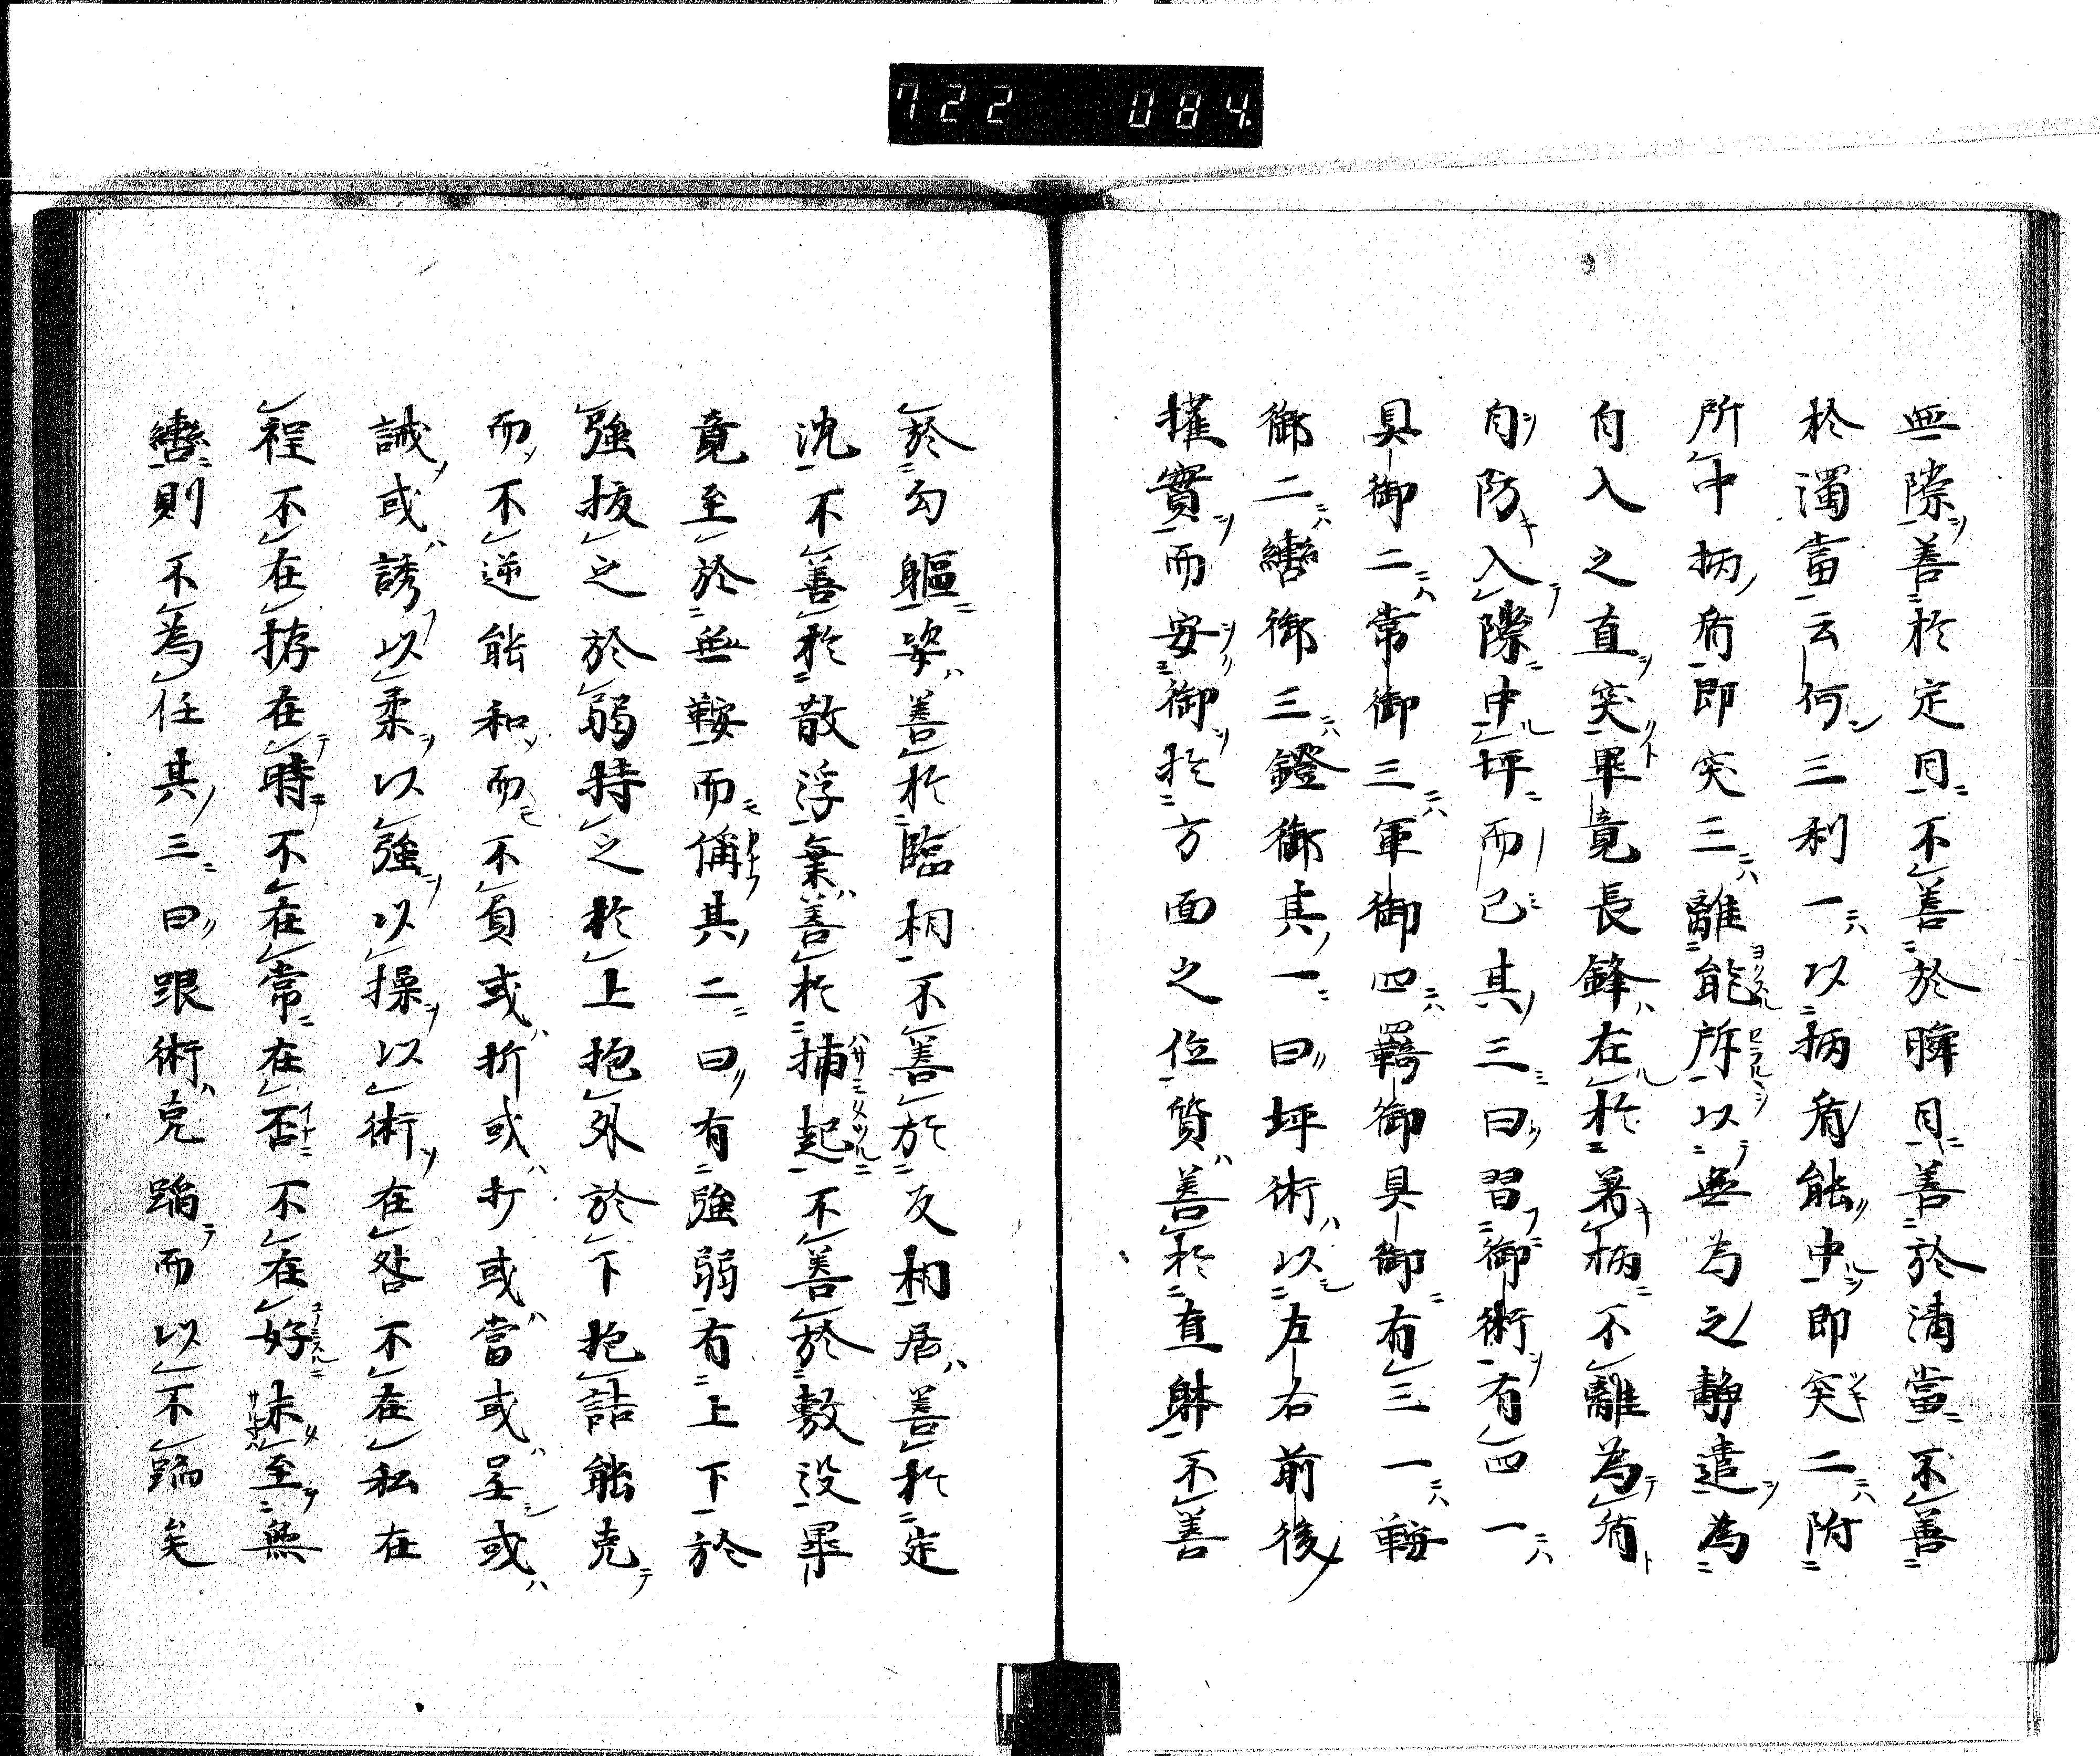 722 084.
無隙善於定目不善於瞬目善於清當不善
於濁當云何三利一以柄有能中即突二附
所中柄有即突三離能所以無為之靜遣為
自入之直突畢竟長鋒在於着柄不離為有
自防入隙中坪而已其三曰習御術有四一
具御二常御三軍御四羈御具御有三一鞍
御二轡御三鐙御其一曰坪術以左右前後
摧實而安御於方面之位質善於直躰不善
於勾軀姿善於臨相不善於反相居善於定
沈不善於散浮棄善於捕起不善於敷没畢
竟至於無鞍而備其二曰有強弱有上下於
強扱之於弱持之於上抱外於下抱詰能克
而不逆能和而不負或折或打或當或呈或
誡或誘以柔以強以操以術在咎不在私在
程不在捞在時不在常在否不在好未至無
轡則不為任其三曰踉術克蹈而以不蹈矣